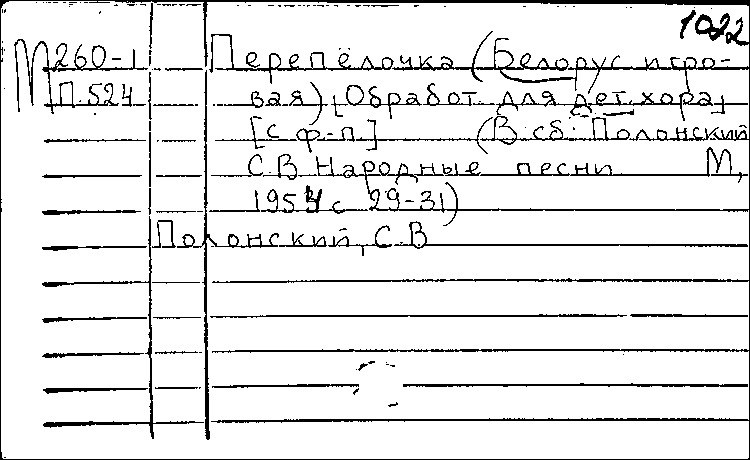 1022
М 260-1 Перепёлочка (Белорус игро-
П 524 вая) [Обработ. для дет. хора]
[с ф-п.] (В сб: Полонский
С.В Народные песни М,
1954 с 29-31)
Полонский, С.В